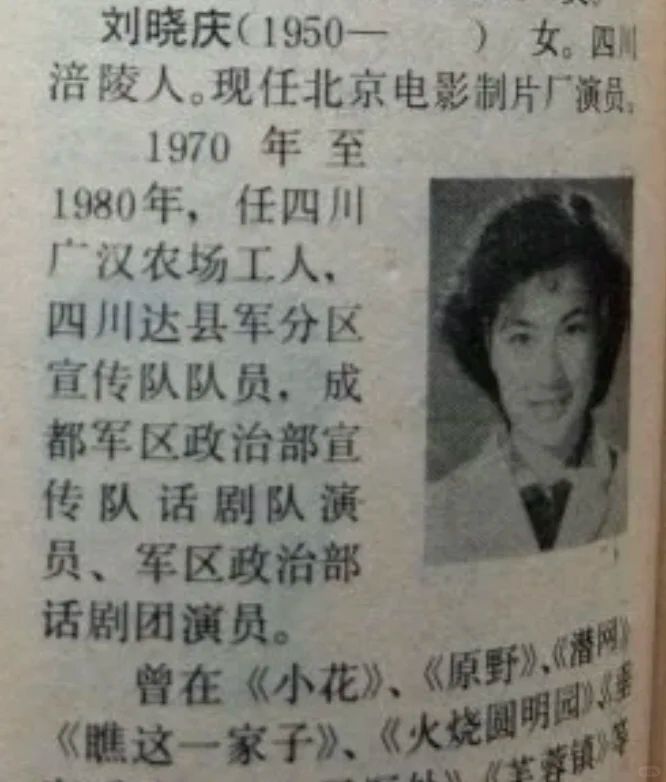 刘晓庆(1950— ) 女。四川
涪陵人。现任北京电影制片厂演员。
1970 年至
1980年，任四川
广汉农场工人，
四川达县军分区
宣传队队员，成
都军区政治部宣
传队话剧队演
员、军区政治部
话剧团演员。
曾在《小花》、《原野》、《潜网》
《瞧这一家子》、《火烧圆明园》、《垂
《芙蓉镇》等